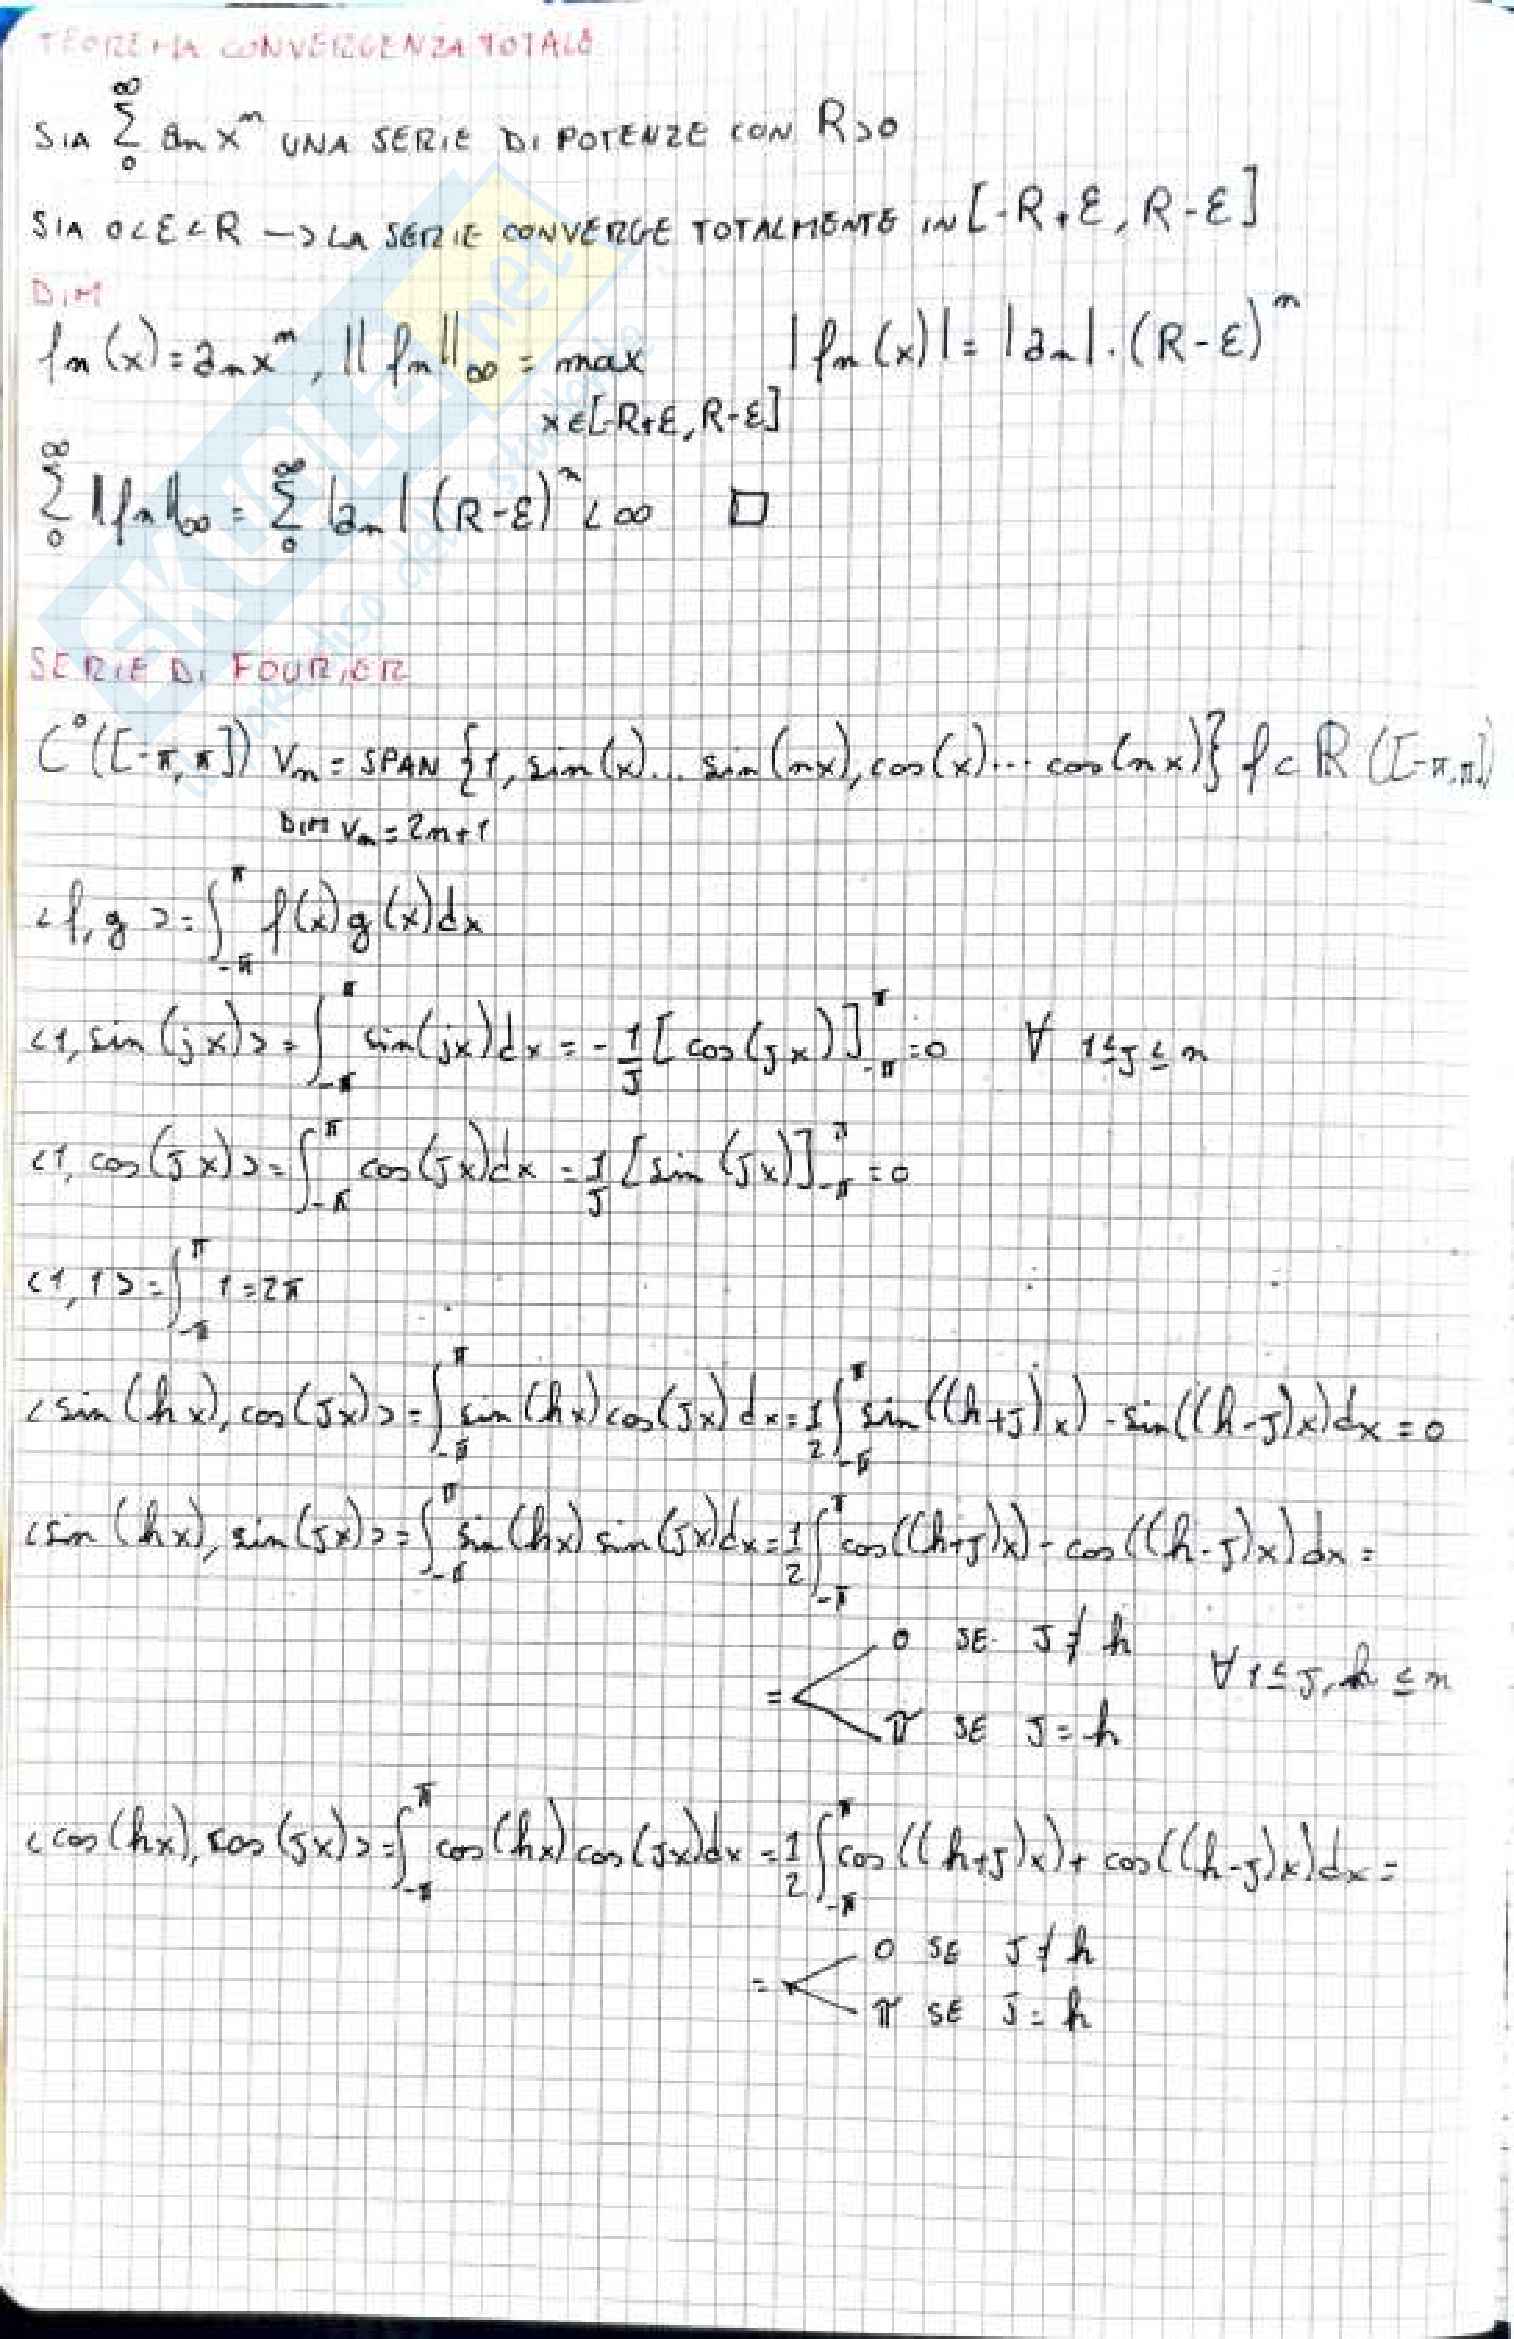 TEOREMA CONVERGENZA TOTALE
SIA ∑₀^∞ aₙ xⁿ UNA SERIE DI POTENZE CON R>0
SIA 0<ε<R → LA SERIE CONVERGE TOTALMENTE IN [-R+ε, R-ε]
DIM
fₙ(x) = aₙxⁿ, ||fₙ||∞ = max |fₙ(x)| = |aₙ|·(R-ε)ⁿ
x∈[-R+ε, R-ε]
∑₀^∞ ||fₙ||∞ = ∑₀^∞ |aₙ| (R-ε)ⁿ < ∞ □
SERIE DI FOURIER
C⁰([-π,π]) Vₙ = SPAN {1, sin(x)... sin(nx), cos(x)... cos(nx)} f ⊂ R([-π,π])
DIM Vₙ = 2n+1
<f,g> = ∫_{-π}^{π} f(x)g(x)dx
<1, sin(jx)> = ∫_{-π}^{π} sin(jx)dx = -1/j [cos(jx)]_{-π}^{π} = 0 ∀ 1≤j≤n
<1, cos(jx)> = ∫_{-π}^{π} cos(jx)dx = 1/j [sin(jx)]_{-π}^{π} = 0
<1,1> = ∫_{-π}^{π} 1 = 2π
<sin(hx), cos(jx)> = ∫_{-π}^{π} sin(hx)cos(jx)dx = 1/2 ∫_{-π}^{π} sin((h+j)x) - sin((h-j)x)dx = 0
<sin(hx), sin(jx)> = ∫_{-π}^{π} sin(hx) sin(jx)dx = 1/2 ∫_{-π}^{π} cos((h+j)x) - cos((h-j)x)dx =
0 SE j≠h
= ∀ 1≤j,h≤n
π SE j=h
<cos(hx), cos(jx)> = ∫_{-π}^{π} cos(hx)cos(jx)dx = 1/2 ∫_{-π}^{π} cos((h+j)x) + cos((h-j)x)dx =
0 SE j≠h
=
π SE j=h
SKUOLA.net